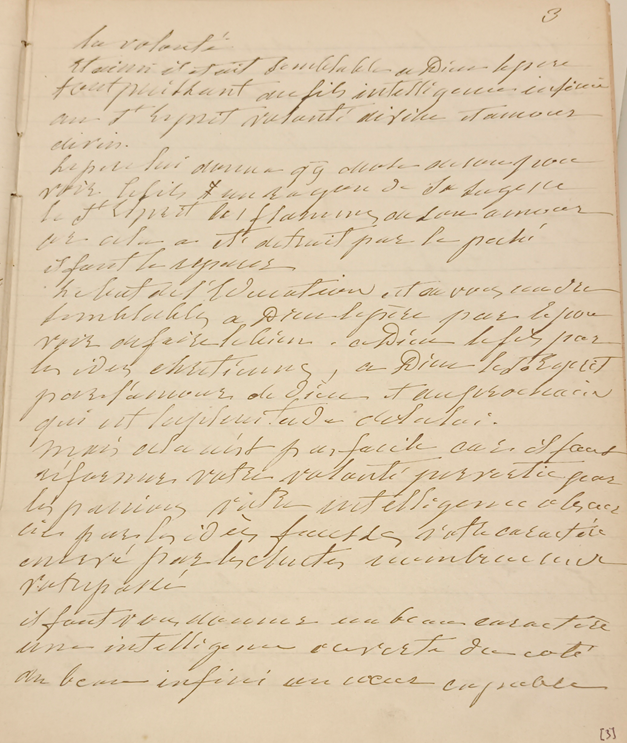 3
la volonté
Ainsi il était semblable a Dieu le pere
tout puissant au fils intelligence infinie
au St Esprit volonté divine et amour
divin.
Le pere lui donna qq chose de son pou
voir le fils un rayon de Sa Sagesse
le St Esprit les flammes de son amour
or cela a été détruit par le peché
il faut le reparer
Le but de l'Education est de vous rendre
semblables a Dieu le pere par le pou
voir de faire le bien . a Dieu le fils par
les idées chretiennes, a Dieu le St Esprit
par l'amour de Dieu et du prochain
qui est la plenitude de la loi.
Mais cela n'est pas facile car il faut
réformer votre volonté pervertie par
les passions votre intelligence obscur
cie par les idées fausses votre caractère
énervé par les chutes nombreuses de
votre passé
il faut vous donner un beau caractère
une intelligence ouverte du coté
du beau infini un coeur capable
[3]